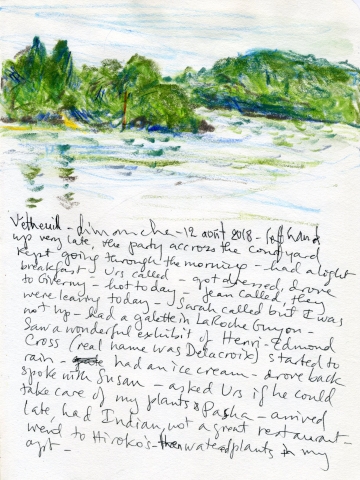 Vétheuil - dimanche - 12 août 2018 -
up very late, the party accross the courtyard
kept going through the morning - had a light
breakfast - Urs called - got dressed, drove
to Giverny - hot today - Jean called, they
were leaving today - Sarah called but I was
not up - had a galette in La Roche Guyon -
Saw a wonderful exhibit of Henri-Edmond
Cross (real name was Delacroix) started to
rain - had an ice cream - drove back
spoke with Susan - asked Urs if he could
take care of my plants & Pasha - arrived
late, had Indian, not a great restaurant -
went to Hiroko's - then watered plants in my
apt -